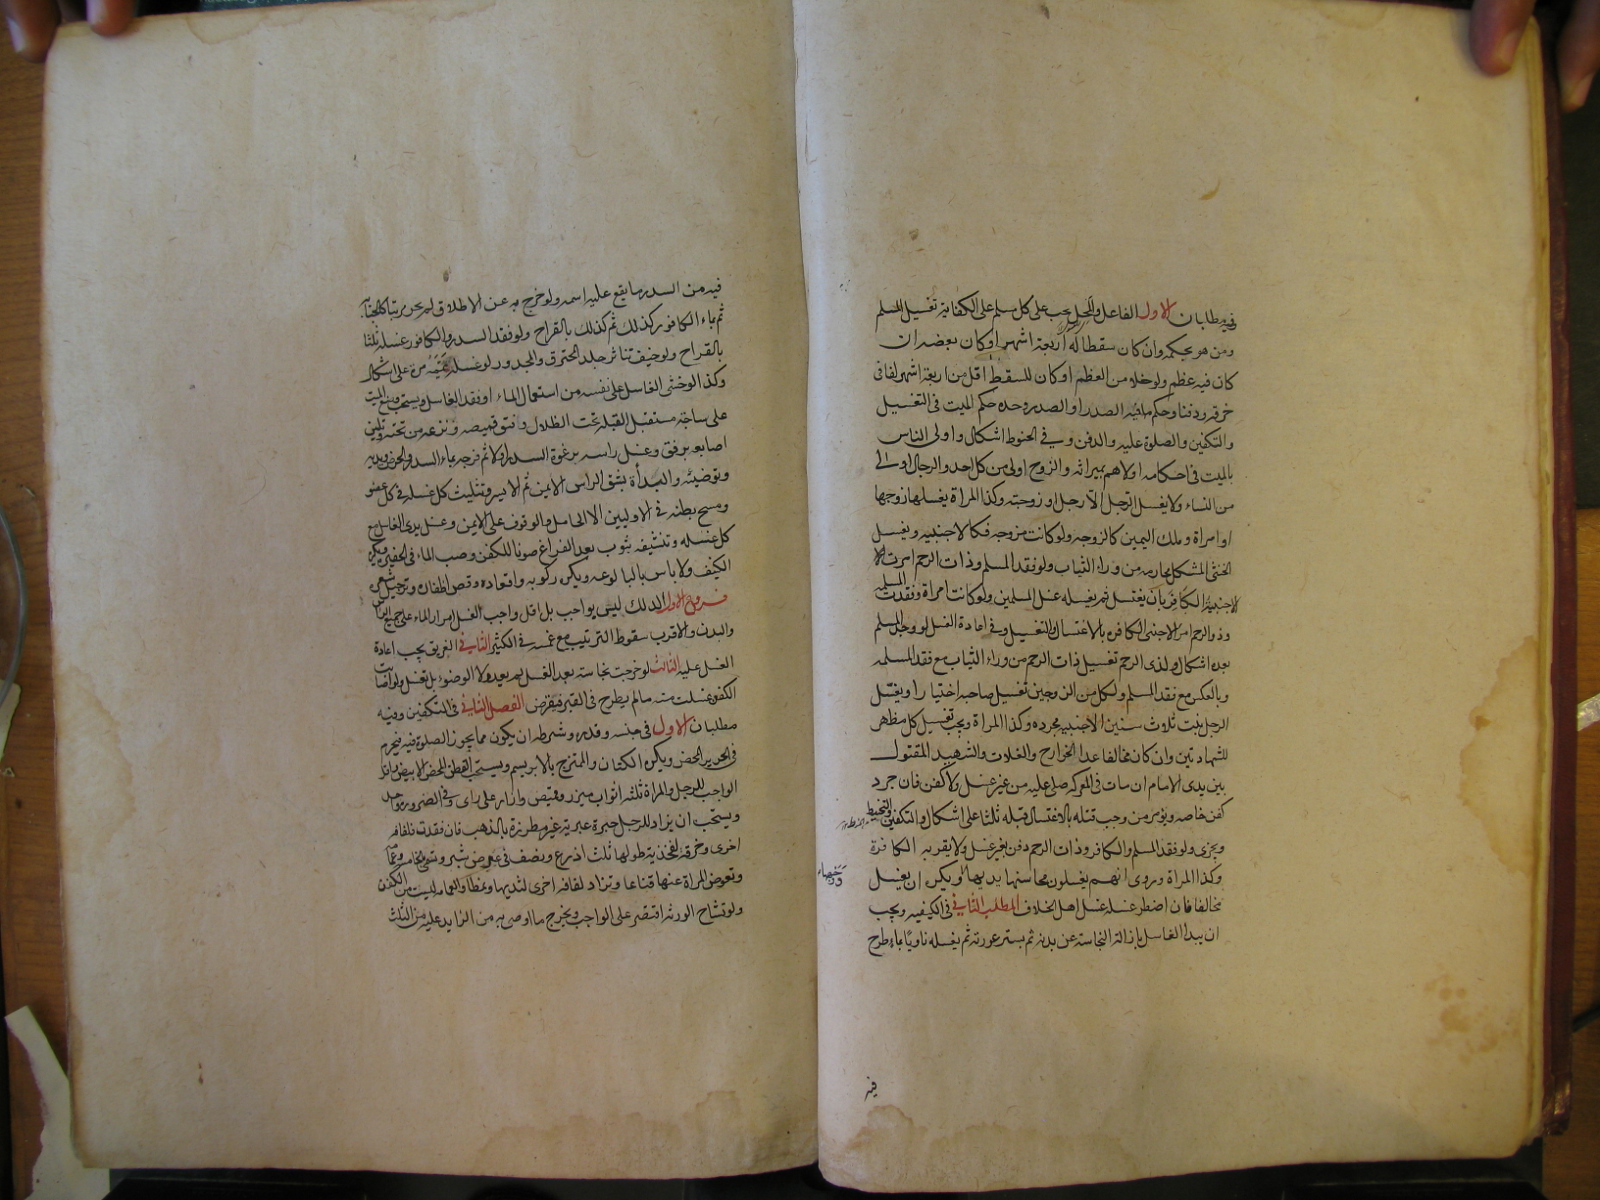 وفيه مطلبان الاول الفاعل والمحل يجب على كل مسلم على الكفاية تغسيل المسلم
ومن هو بحكمه وان كان سقطا له اربعة اشهر او كان بعضه ان
كان فيه عظم ولو خلا من العظم او كان للسقط اقل من اربعة اشهر لفا في
خرقة ودفنا وحكم ما فيه الصدر او الصدر وحده حكم الميت في التغسيل
والتكفين والصلوة عليه والدفن وفي الحنوط اشكال واولى الناس
بالميت في احكامه اولاهم بميراثه والزوج اولى من كل احد والرجال اولى
من النساء ولا يغسل الرجل الا رجل او زوجته وكذا المراة يغسلها زوجها
او امراة وملك اليمين كالزوجه ولو كانت مزوجه فكالاجنبيه ويغسل
الخنثى المشكل محارمه من وراء الثياب ولو فقد المسلم وذات الرحم امرت
الاجنبية الكافر بان يغتسل ثم يغسله غسل المسلمين ولو كانت امراة وفقدت المسلمة
وذو الرحم امر الاجنبى الكافره بالاغتسال والتغسيل وفي اعادة الغسل لو وجد المسلم
بعده اشكال ولذى الرحم تغسيل ذات الرحم من وراء الثياب مع فقد المسلمه
وبالعكس مع فقد المسلم ولكل من الزوجين تغسيل صاحبه اختيارا ويغسل
الرجل بنت ثلاث سنين الاجنبيه مجرده وكذا المراة ويجب تغسيل كل مظهر
للشهادتين وان كان مخالفا عدا الخوارج والغلات والشهيد المقتول
بين يدى الامام ان مات في المعركه صلى عليه من غير غسل ولا كفن فان جرد
كفن خاصه ويؤمر من وجب قتله بالاغتسال قبله ثلثا على اشكال والتكفين والتحنيط
ويجزى ولو فقد المسلم والكافر وذات الرحم دفن بغير غسل ولا يقربه الكافرة
وكذا المراة وروى انهم يغسلون محاسنها يديها او يكره ان يغسل
ووجهها
مخالفا فان اضطر غسله غسل اهل الخلاف المطلب الثاني في الكيفيه ويجب
ان يبدا الغاسل بازالة النجاسة عن بدنه ثم يستر عورته ثم يغسله ناويا بماء طرح
فيه
فيه من السدر ما يقع عليه اسمه ولو خرج به عن الاطلاق لم يجز مرتبا كالجنابه
ثم بماء الكافور كذلك ثم كذلك بالقراح ولو فقد السدر والكافور غسله ثلثا
بالقراح ولو خيف تناثر جلد المحترق والمجدور لو غسله يممه مرة على اشكال
وكذا لو خشى الغاسل على نفسه من استعمال الماء او فقد الغاسل ويستحب وضع الميت
على ساجة مستقبل القبلة تحت الظلال وفتق قميصه ونزعه من تحته وتليين
اصابعه برفق وغسل راسه برغوة السدر اولا ثم فرجه بماء السدر والحرض ويديه
وتوضيئه والبدأة بشق الراس الايمن ثم الايسر وتثليث كل غسله في كل عضو
ومسح بطنه في الاوليين الا الحامل والوقوف على الايمن وغسل يدى الغاسل مع
كل غسله وتنشيفه بثوب بعد الفراغ صونا للكفن وصب الماء في الحفيره ويكره
الكنيف ولا باس بالبالوعه ويكره ركوبه واقعاده وقص اظفاره وترجيل شعره
فروع الاول الدلك ليس بواجب بل اقل واجب الغسل امرار الماء على جميع الراس
والبدن والاقرب سقوط الترتيب مع غمسه في الكثير الثاني الغريق يجب اعادة
الغسل عليه الثالث لو خرجت نجاسة بعد الغسل لم يعد ولا الوضوء بل تغسل ولو اصابت
الكفن غسلت منه ما لم يطرح في القبر فيقرض الفصل الثاني في التكفين وفيه
مطلبان الاول في جنسه وقدره وشرطه ان يكون مما يجوز الصلوة فيه فيحرم
في الحرير المحض ويكره الكتان والممتزج بالابريسم ويستحب القطن المحض الابيض
الواجب للرجل والمراة ثلثه اثواب ميزر وقميص وازار على راى وفي الضروره واحد
ويستحب ان يزاد للرجل حبرة عبرية غير مطرزة بالذهب فان فقدت فلفافه
اخرى وخرقة لفخذيه طولها ثلث اذرع ونصف في عرض شبر وتسمى الخامسه
وتعوض المراة عنها قناعا وتزاد لفافه اخرى لثدييها ونمطا والعمامه ليست من الكفن
ولو تشاح الورثه اقتصر على الواجب ويخرج ما اوصى به من الزايد عليه من الثلث